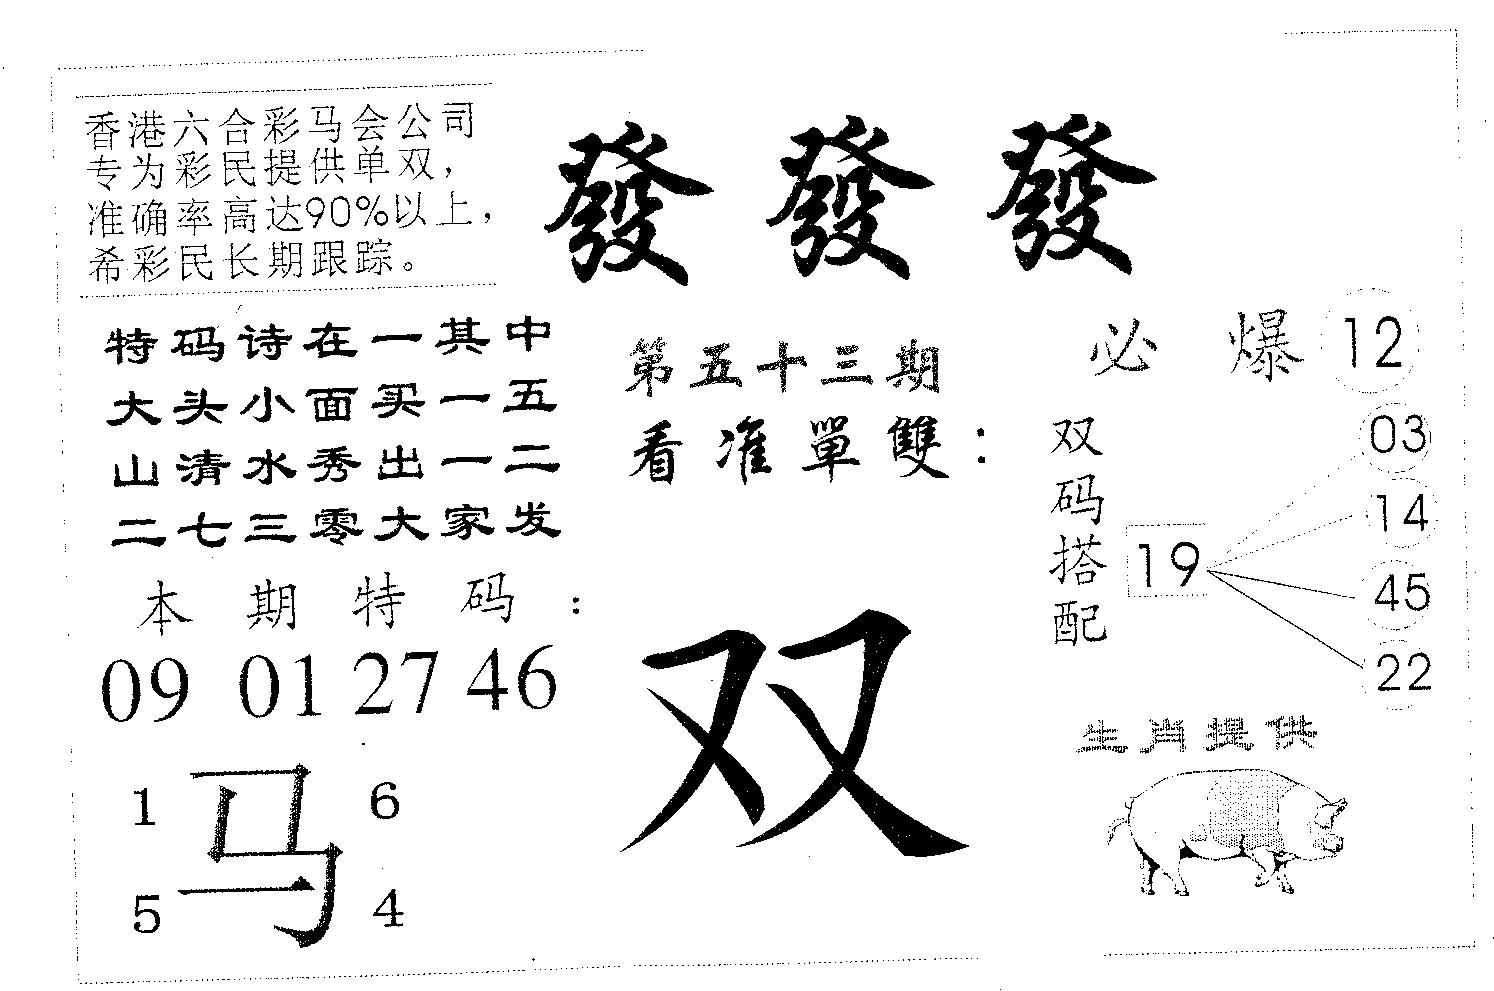 香港六合彩马会公司
专为彩民提供单双，
准确率高达90%以上，
希彩民长期跟踪。
發發發
特码诗在一其中
大头小面买一五
山清水秀出一二
二七三零大家发
第五十三期
看准單雙：
双
必爆12
双码搭配
19
03
14
45
22
本期特码：
09 01 27 46
1 马 6
5 4
生肖提供